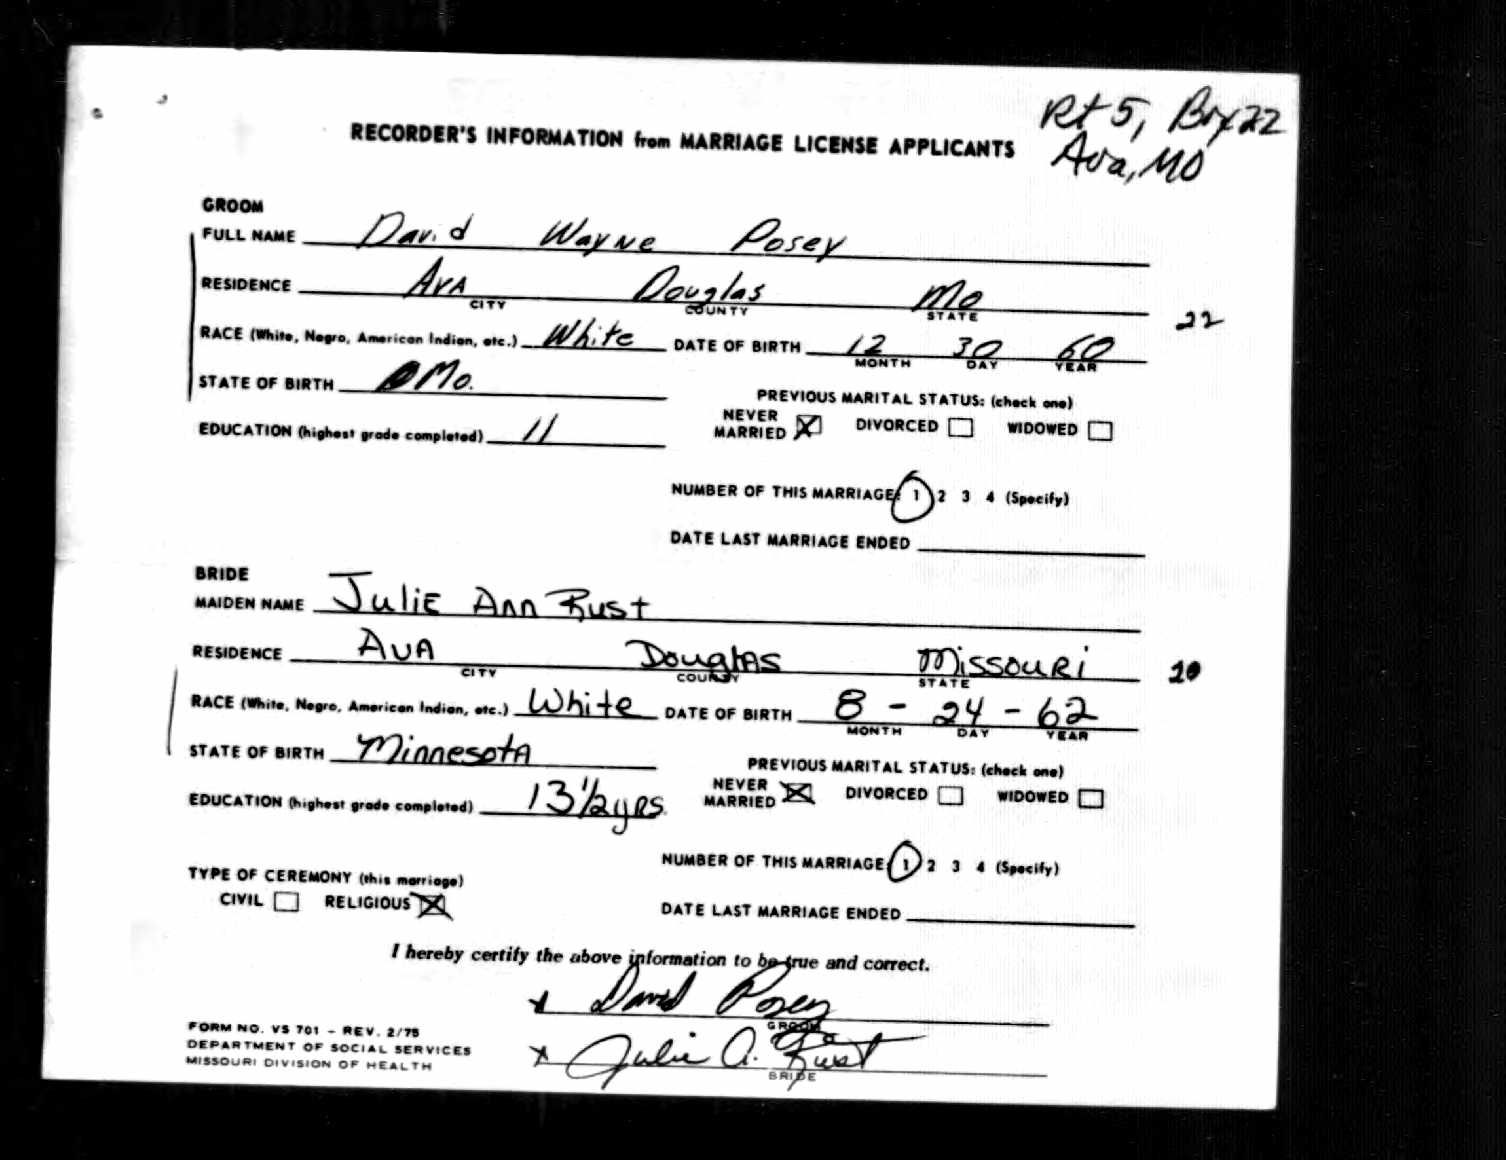 Rt 5, Box 22
Ava, MO
RECORDER'S INFORMATION from MARRIAGE LICENSE APPLICANTS
GROOM
FULL NAME David Wayne Posey
RESIDENCE Ava Douglas Mo
CITY COUNTY STATE
22
RACE (White, Negro, American Indian, etc.) White DATE OF BIRTH 12 30 60
MONTH DAY YEAR
STATE OF BIRTH Mo.
PREVIOUS MARITAL STATUS: (check one)
EDUCATION (highest grade completed) 11
NEVER MARRIED DIVORCED WIDOWED
NUMBER OF THIS MARRIAGE: 1 2 3 4 (Specify)
DATE LAST MARRIAGE ENDED
BRIDE
MAIDEN NAME Julie Ann Rust
RESIDENCE Ava Douglas Missouri
CITY COUNTY STATE
20
RACE (White, Negro, American Indian, etc.) White DATE OF BIRTH 8 - 24 - 62
MONTH DAY YEAR
STATE OF BIRTH Minnesota
PREVIOUS MARITAL STATUS: (check one)
EDUCATION (highest grade completed) 13 1/2 yrs.
NEVER MARRIED DIVORCED WIDOWED
NUMBER OF THIS MARRIAGE: 1 2 3 4 (Specify)
TYPE OF CEREMONY (this marriage)
CIVIL RELIGIOUS
DATE LAST MARRIAGE ENDED
I hereby certify the above information to be true and correct.
x David Posey
GROOM
x Julie A. Rust
BRIDE
FORM NO. VS 701 - REV. 2/75
DEPARTMENT OF SOCIAL SERVICES
MISSOURI DIVISION OF HEALTH